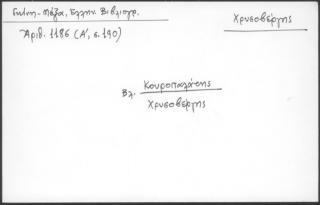 Γκίνη-Μέξα, Ελλην. Βιβλιογρ.
Χρυσοβέργης
Ἀριθ. 1186 (Α', σ. 190)
Βλ. Κουροπαλάτης
Χρυσοβέργης